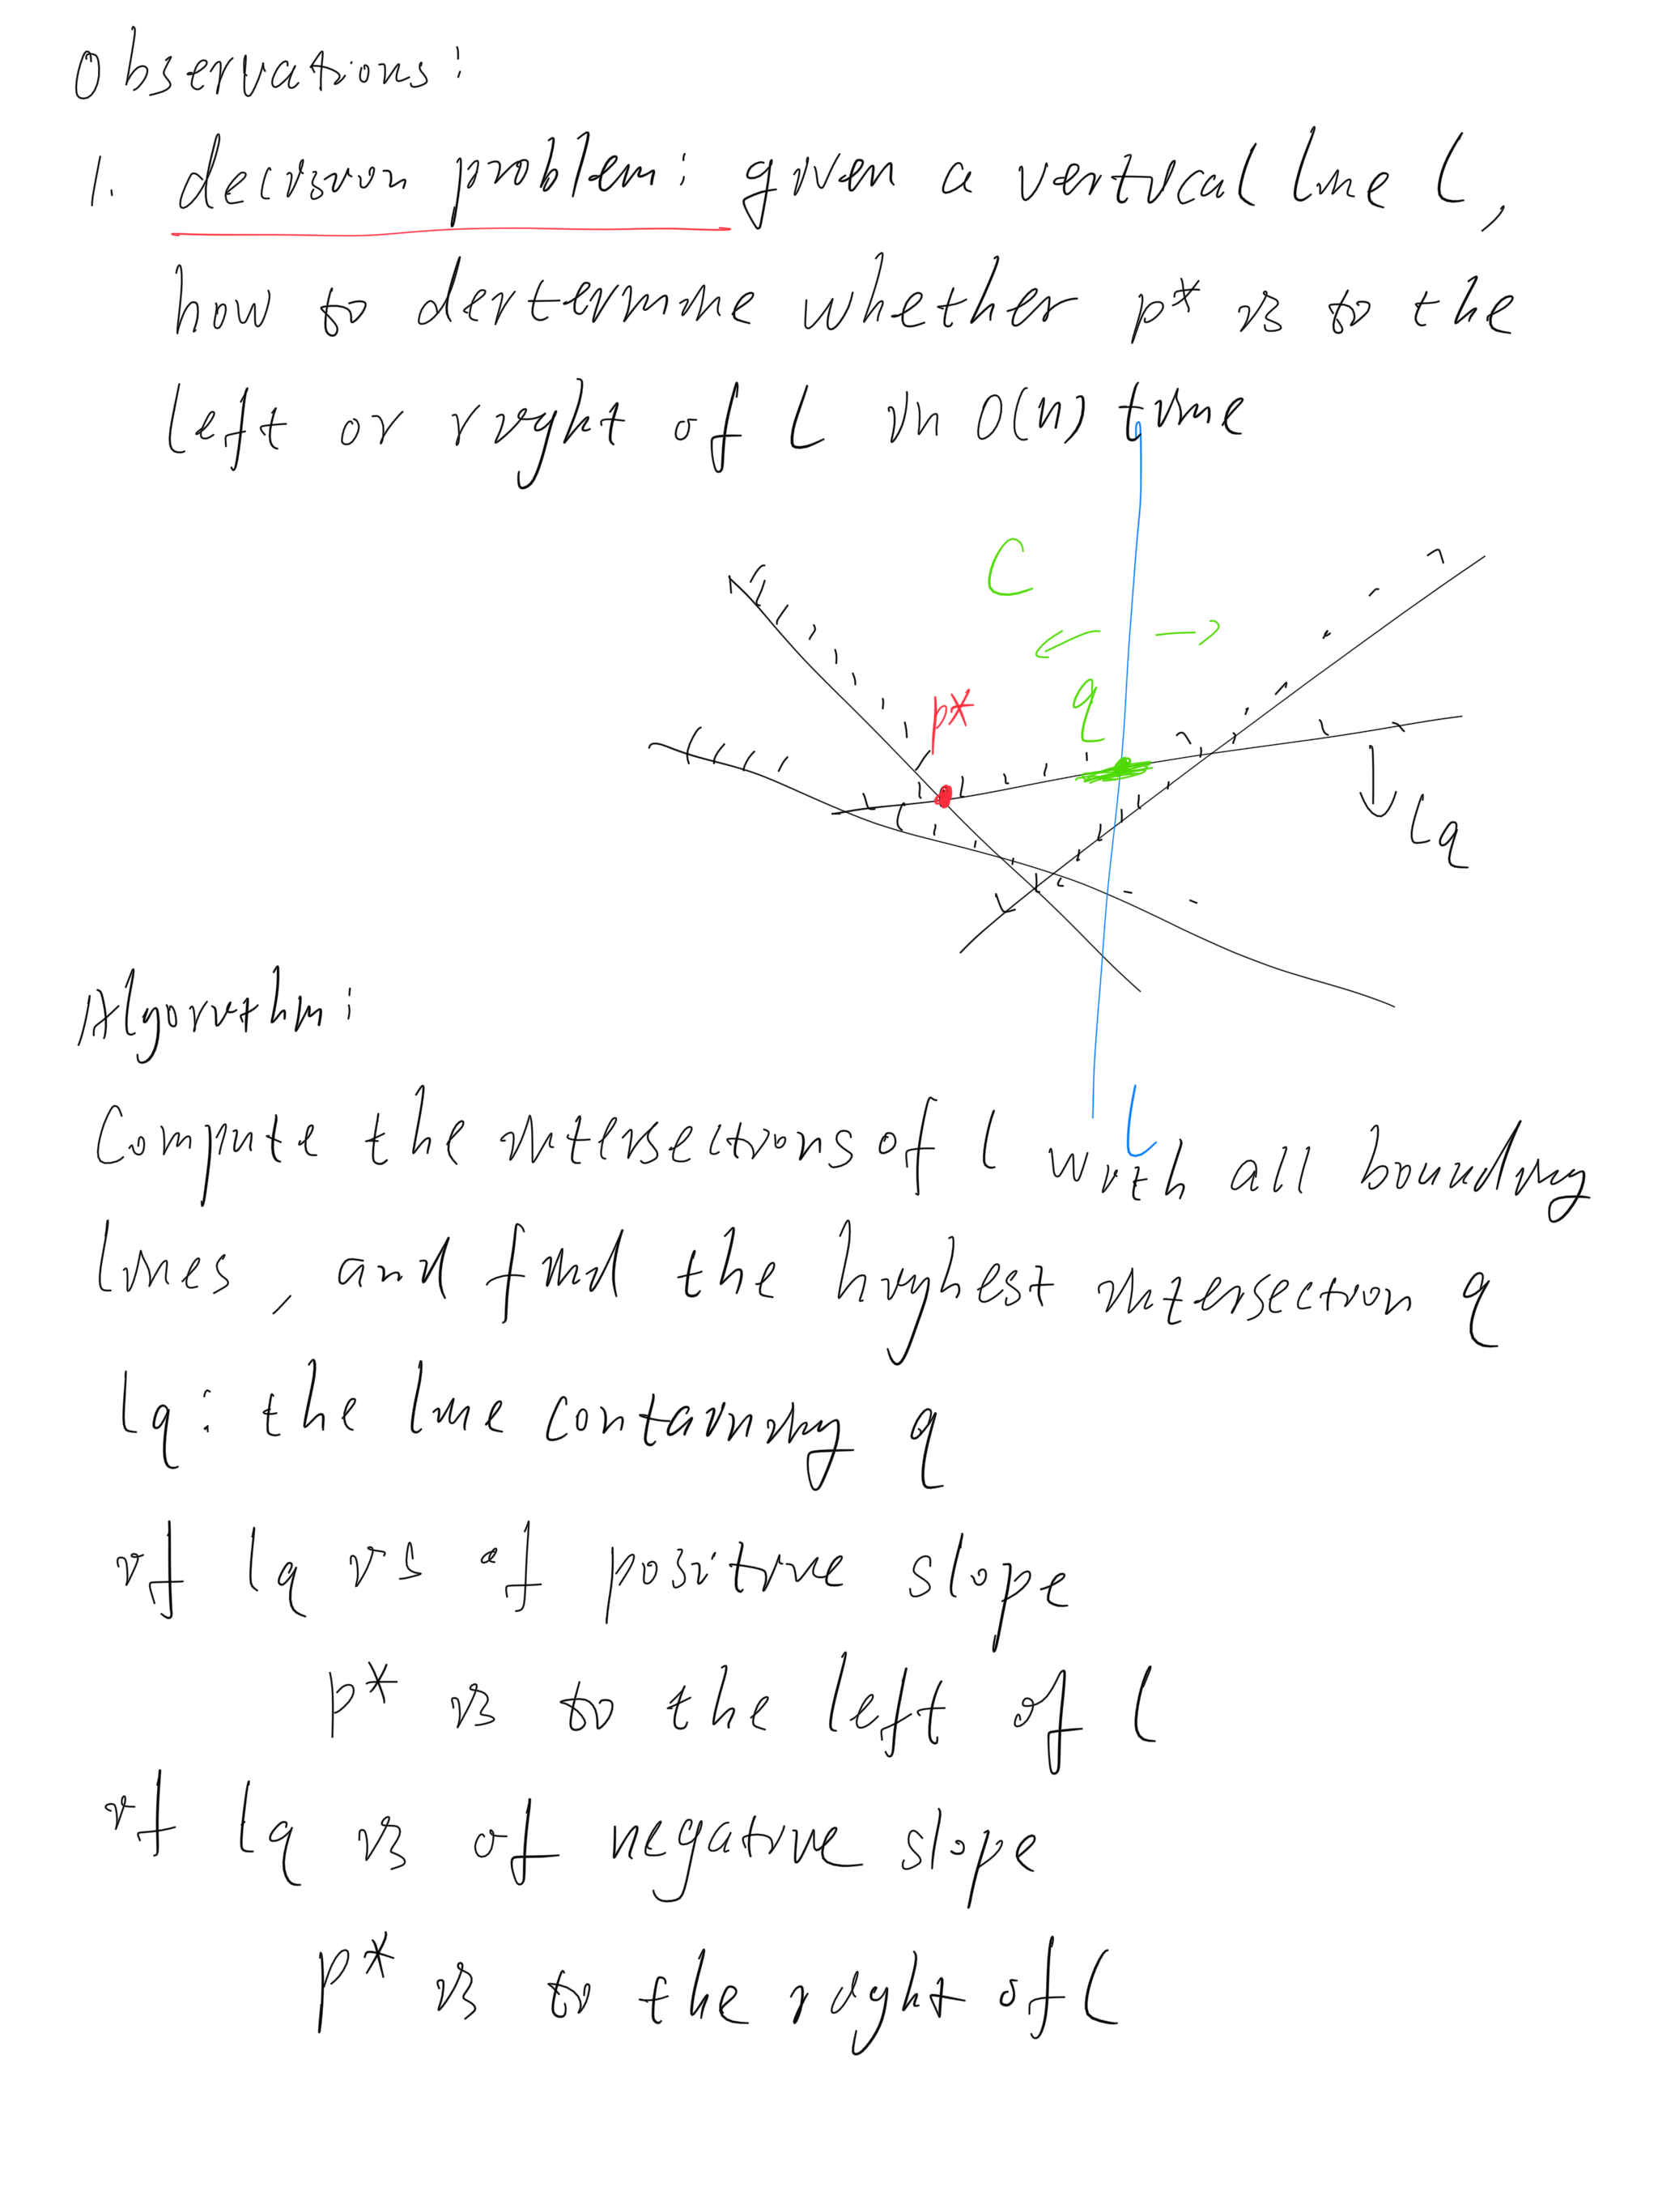 Observations:
1. decision problem: given a vertical line l,
how to dertermine whether p* is to the
left or right of l in O(n) time
C
← →
q
p*
lq
l
Algorithm:
Compute the intersections of l with all bounding
lines, and find the highest intersection q
lq: the line containing q
if lq is of positive slope
p* is to the left of l
if lq is of negative slope
p* is to the right of l